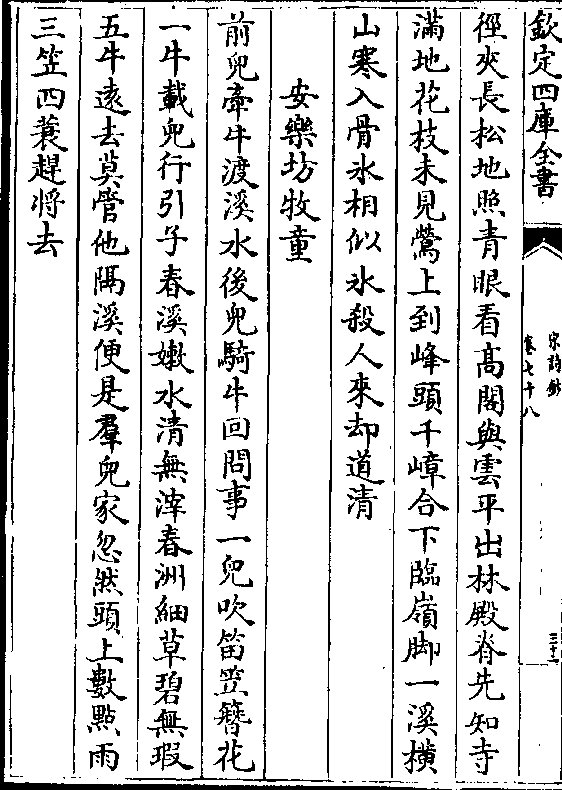 欽定四庫全書
宋詩鈔
卷七十八
三十二
徑夾長松地照青眼看高閣與雲平出林殿脊先知寺
滿地花枝未見鶯上到峰頭千嶂合下臨嶺脚一溪橫
山寒入骨氷相似氷殺人來却道清
安樂坊牧童
前兒牽牛渡溪水後兒騎牛回問事一兒吹笛笠簪花
一牛載兒行引子春溪嫩水清無滓春洲細草碧無瑕
五牛逺去莫管他隔溪便是羣兒家忽然頭上數點雨
三笠四蓑趕將去